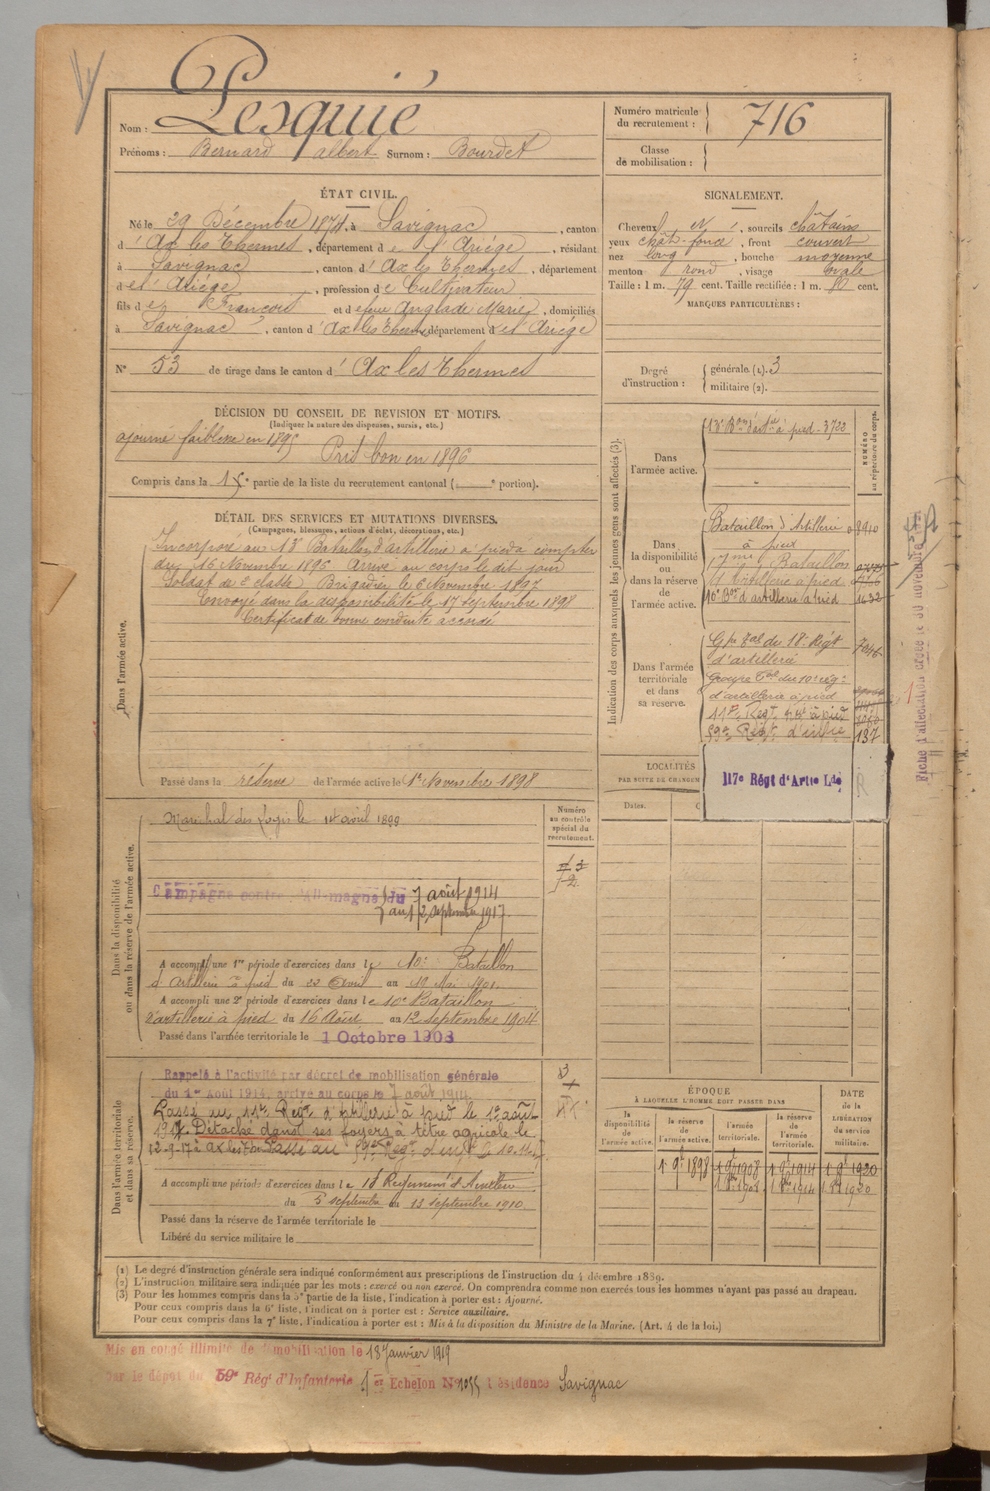 Nom : Pesquié
Prénoms : Bernard albert Surnom : Bourdet
Numéro matricule du recrutement : 716
Classe de mobilisation :
ÉTAT CIVIL.
Né le 29 Décembre 1874, à Savignac, canton
d'Ax les Thermes, département de l'Ariège, résidant
à Savignac, canton d'Ax les Thermes, département
de l'Ariège, profession de Cultivateur
fils de François et de feue Anglade Marie, domiciliés
à Savignac, canton d'Ax les Thermes département de l'Ariège
N° 53 de tirage dans le canton d'Ax les Thermes
SIGNALEMENT.
Cheveux et, sourcils châtains
yeux chât-foncé, front couvert
nez long, bouche moyenne
menton rond, visage ovale
Taille : 1 m. 79 cent. Taille rectifiée : 1 m. 80 cent.
MARQUES PARTICULIÈRES :
Degré d'instruction : générale (1). 3
militaire (2).
DÉCISION DU CONSEIL DE REVISION ET MOTIFS.
(Indiquer la nature des dispenses, sursis, etc.)
ajourné faiblesse en 1895
Pris bon en 1896
Compris dans la partie de la liste du recrutement cantonal ( portion).
DÉTAIL DES SERVICES ET MUTATIONS DIVERSES.
(Campagnes, blessures, actions d'éclat, décorations, etc.)
Dans l'armée active.
Incorporé au 13e Bataillon d'artillerie à pied à compter
du 16 Novembre 1896 Arrivé au corps le dit jour
Soldat de 2e classe Brigadier le 6 Novembre 1897
Envoyé dans la disponibilité le 17 Septembre 1898
Certificat de bonne conduite accordé
Passé dans la réserve de l'armée active le 1er Novembre 1898
Indication des corps auxquels les jeunes gens sont affectés (3).
NUMÉRO au répertoire du corps.
Dans l'armée active.
13e Bon d'artie à pied - 3722
Dans la disponibilité ou dans la réserve de l'armée active.
Bataillon d'Artillerie 8910
à pied
Bataillon
d'Artillerie à pied
10e Bon d'artillerie à pied 1632
Dans l'armée territoriale et dans sa réserve.
Gpe Tal du 18e Régt 7046
d'artillerie
Groupe Tal du 10e rég.
d'artillerie à pied
11e Régt à pied
59e Régt d'infie 137
117e Régt d'Artie Lde
LOCALITÉS
Dates.
Dans la disponibilité ou dans la réserve de l'armée active.
Maréchal des Logis le 14 avril 1899
Numéro au contrôle spécial du recrutement.
Campagne contre l'Allemagne du 7 août 1914
au 12 septembre 1917
A accompli une 1re période d'exercices dans le 10e Bataillon
d'artillerie à pied du 22 Avril au 19 Mai 1901
A accompli une 2e période d'exercices dans le 10e Bataillon
d'artillerie à pied du 16 Août au 12 septembre 1904
Passé dans l'armée territoriale le 1 Octobre 1908
Dans l'armée territoriale et dans sa réserve.
Rappelé à l'activité par décret de mobilisation générale
du 1er Août 1914, arrivé au corps le 7 août 1914
Passé au 11e Régt d'artillerie à pied le 1er août
1917. Détaché dans ses foyers à titre agricole le
12-9-17 à Ax les Th. Passé au 59e Régt d'infie le
A accompli une période d'exercices dans le 18 Régiment d'Artillerie
du 5 septembre au 13 septembre 1910.
Passé dans la réserve de l'armée territoriale le
Libéré du service militaire le
ÉPOQUE
À LAQUELLE L'HOMME DOIT PASSER DANS
la disponibilité de l'armée active.
la réserve de l'armée active.
l'armée territoriale.
la réserve de l'armée territoriale.
DATE de la LIBÉRATION du service militaire.
1 9bre 1898 1 9bre 1908 1 9bre 1914 1 9bre 1920
(1) Le degré d'instruction générale sera indiqué conformément aux prescriptions de l'instruction du 4 décembre 1889.
(2) L'instruction militaire sera indiquée par les mots : exercé ou non exercé. On comprendra comme non exercés tous les hommes n'ayant pas passé au drapeau.
(3) Pour les hommes compris dans la 5e partie de la liste, l'indication à porter est : Ajourné.
Pour ceux compris dans la 6e liste, l'indication à porter est : Service auxiliaire.
Pour ceux compris dans la 7e liste, l'indication à porter est : Mis à la disposition du Ministre de la Marine. (Art. 4 de la loi.)
Mis en congé illimité de démobilisation le 13 Janvier 1919
par le dépôt du 59e Régt d'Infanterie 1er Echelon N° 1055 résidence Savignac